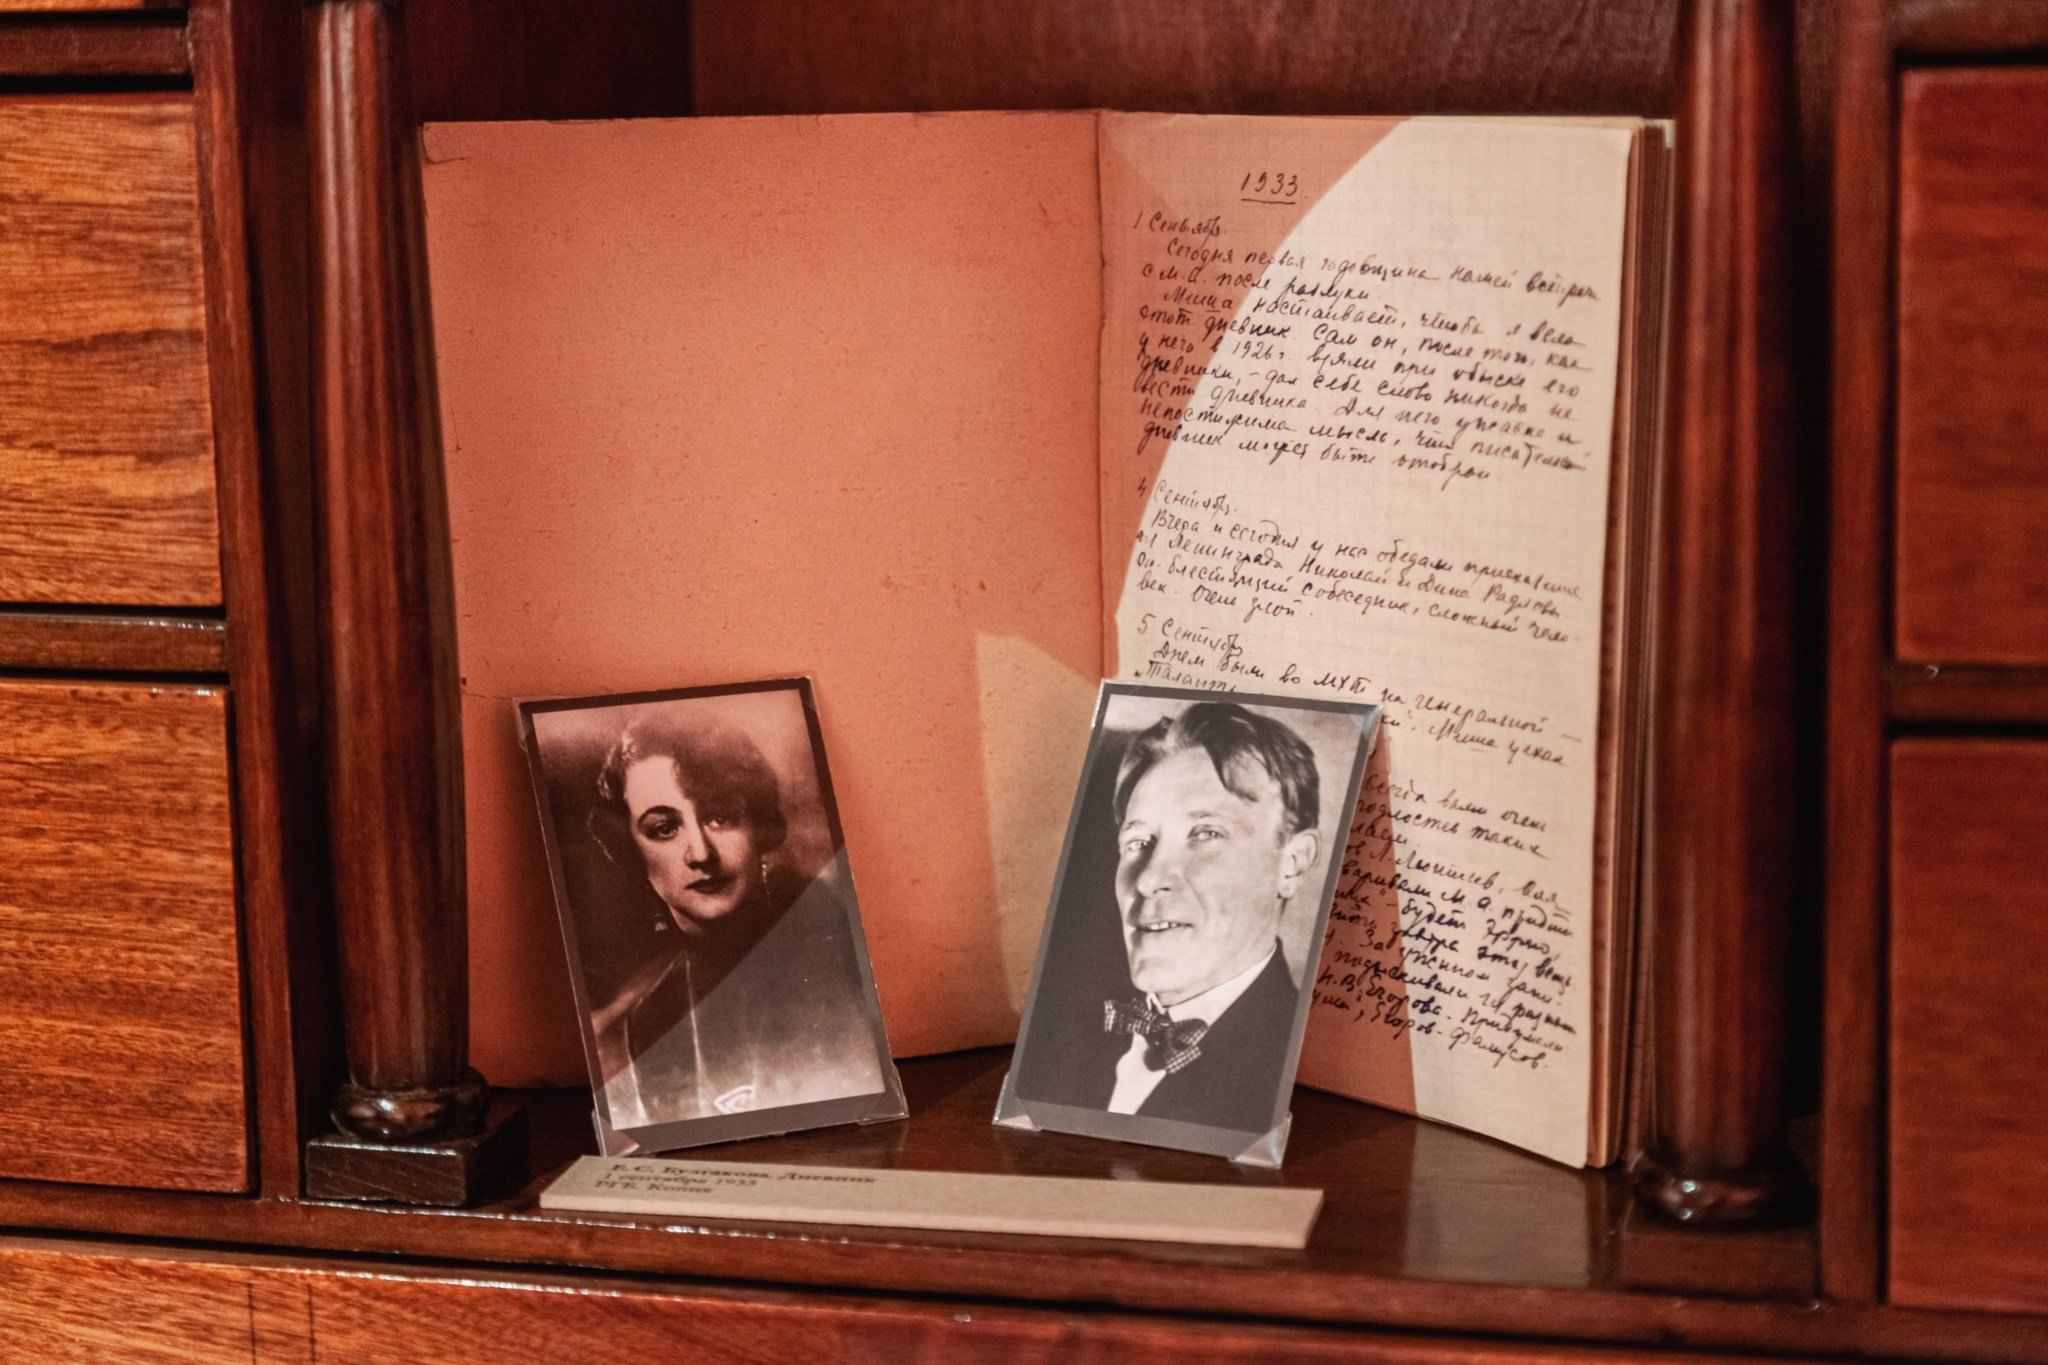 1933.
1 Сентябрь.
Сегодня первая годовщина нашей встречи
с М.А. после разлуки.
Миша настаивает, чтобы я вела
этот дневник. Сам он, после того, как
у него в 1926 г. взяли при обыске его
дневники, – дал себе слово никогда не
вести дневника. Для него ужасна и
непостижима мысль, что писательский
дневник может быть отобран.
4 Сентябрь.
Вчера и сегодня у нас обедали приехавшие
из Ленинграда Николай и Дина Радловы.
Он – блестящий собеседник, сложный чело-
век. Очень злой.
5 Сентябрь.
Днем были во МХТ на генеральной –
„Таланты ки". Миша уехал
всегда вами очень
подлостей таких
ов Л. Леонтьев, Оля
М.А. придти
" – будет Эррио,
завтра этот вещь.
. За ужином
подыскивали разным
Н.В. Егорова. Придумали:
, Егоров – Фамусов.
Е. С. Булгакова. Дневник
1 сентября 1933
РГБ. Копия